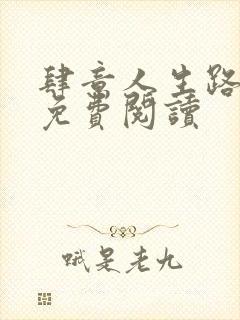 肆意人生路
免費閱讀
哦是老九